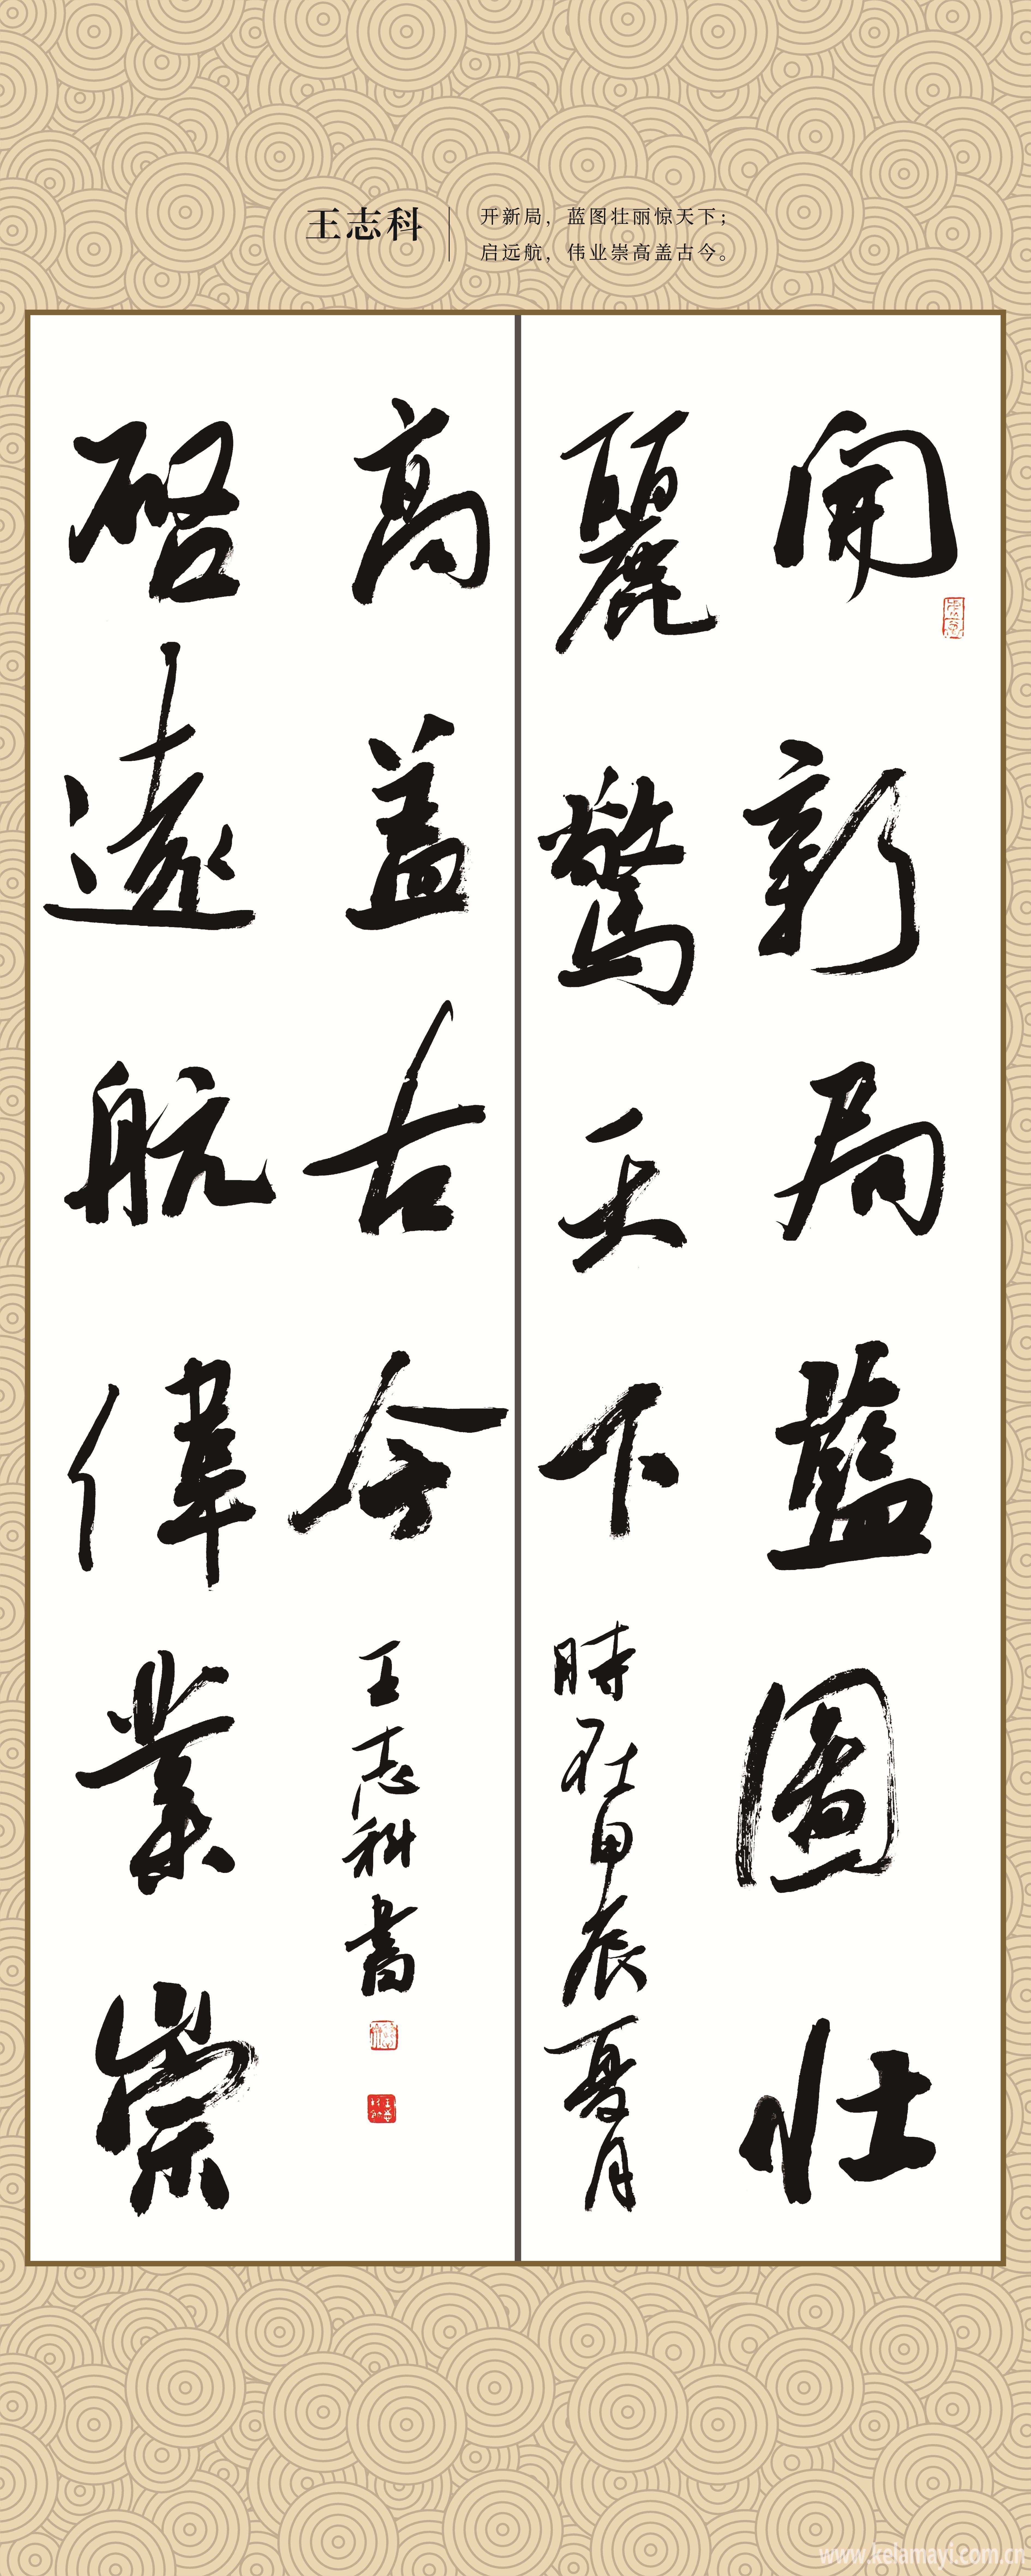 王志科
开新局，蓝图壮丽惊天下；
启远航，伟业崇高盖古今。
開新局藍圖壮
麗驚天下
時在甲辰夏月
啓遠航偉業崇
高盖古今
王志科書
www.kelamayi.com.cn